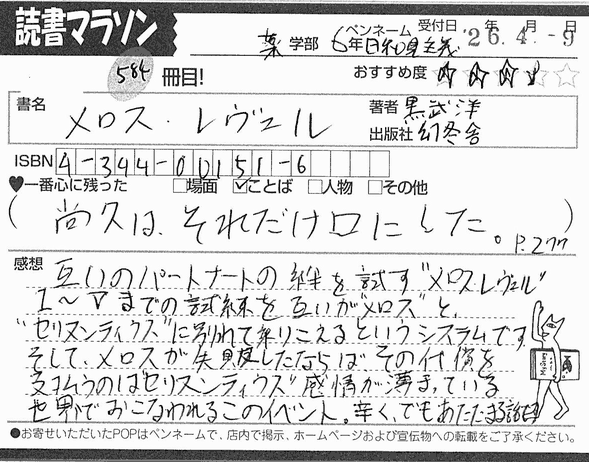 読書マラソン
薬 学部 6年 ペンネーム 日和見主義 受付日 '26.年4.月-9日
584 冊目!
おすすめ度 ☆☆☆☆☆
書名 メロス・レヴェル
著者 黒武洋
出版社 幻冬舎
ISBN 4-344-00151-6
♥一番心に残った □場面 ☑ことば □人物 □その他
(尚久は、それだけ口にした。 P.277)
感想 互いのパートナートの絆を試す"メロスレヴェル"
I～Vまでの試練を互いが"メロス"と、
"セリヌンティウス"に別れて乗りこえるというシステムです
そして、メロスが失敗したならばその代償を
支払うのは"セリヌンティウス"感情が薄まっている
世界でおこなわれるこのイベント。辛く、でもあたたまる話
●お寄せいただいたPOPはペンネームで、店内で掲示、ホームページおよび宣伝物への転載をご了承ください。